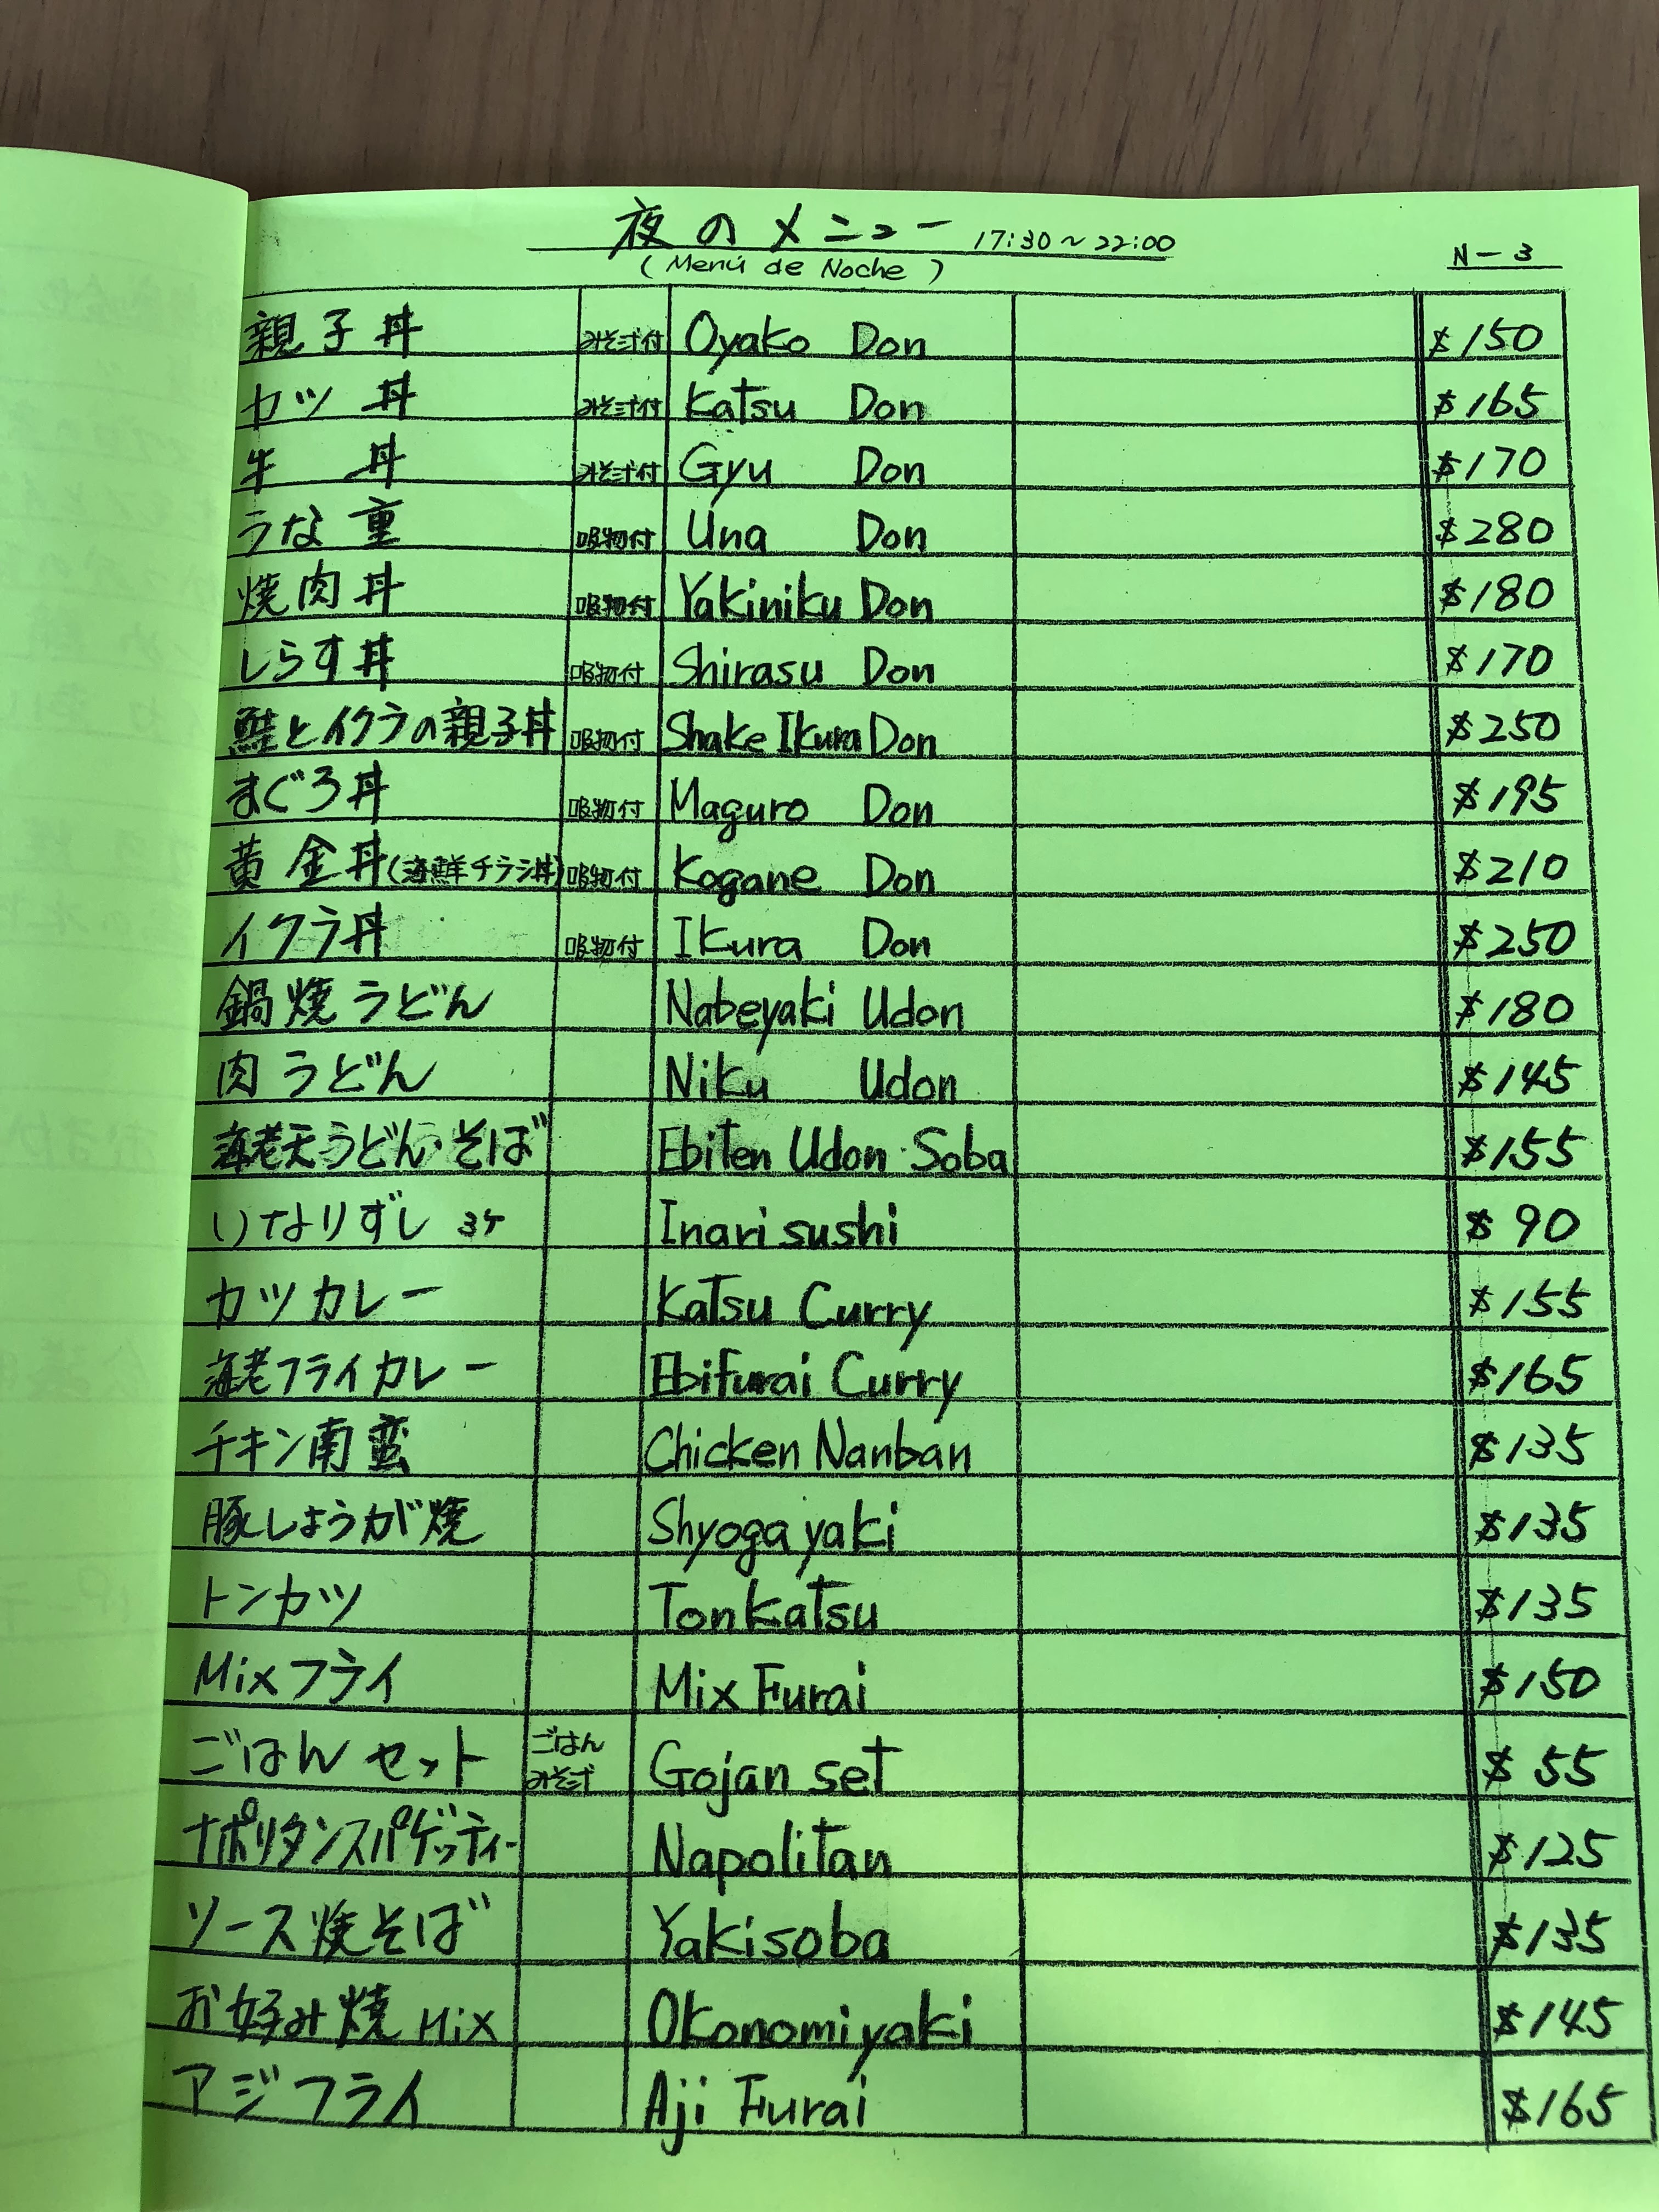 夜のメニュー 17:30～22:00
(Menú de Noche)
N-3
親子丼 みそ汁付 Oyako Don $150
カツ丼 みそ汁付 Katsu Don $165
牛丼 みそ汁付 Gyu Don $170
うな重 吸物付 Una Don $280
焼肉丼 吸物付 Yakiniku Don $180
しらす丼 吸物付 Shirasu Don $170
鮭とイクラの親子丼 吸物付 Shake Ikura Don $250
まぐろ丼 吸物付 Maguro Don $195
黄金丼(海鮮チラシ丼) 吸物付 Kogane Don $210
イクラ丼 吸物付 Ikura Don $250
鍋焼うどん Nabeyaki Udon $180
肉うどん Niku Udon $145
海老天うどん・そば Ebiten Udon・Soba $155
いなりずし 3ケ Inari sushi $90
カツカレー Katsu Curry $155
海老フライカレー Ebifurai Curry $165
チキン南蛮 Chicken Nanban $135
豚しょうが焼 Shyoga yaki $135
トンカツ Tonkatsu $135
Mixフライ Mix Furai $150
ごはんセット ごはん みそ汁 Gojan set $55
ナポリタンスパゲッティー Napolitan $125
ソース焼そば Yakisoba $135
お好み焼 Mix Okonomiyaki $145
アジフライ Aji Furai $165